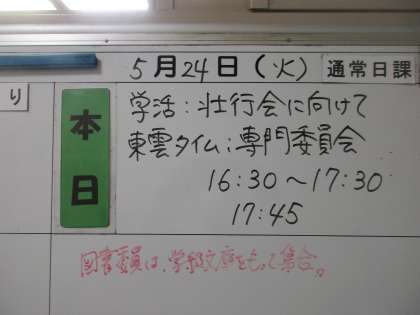 5月24日(火) 通常日課
り
本日
学活:壮行会に向けて
東雲タイム:専門委員会
16:30～17:30
17:45
図書委員は、学級文庫をもって集合。